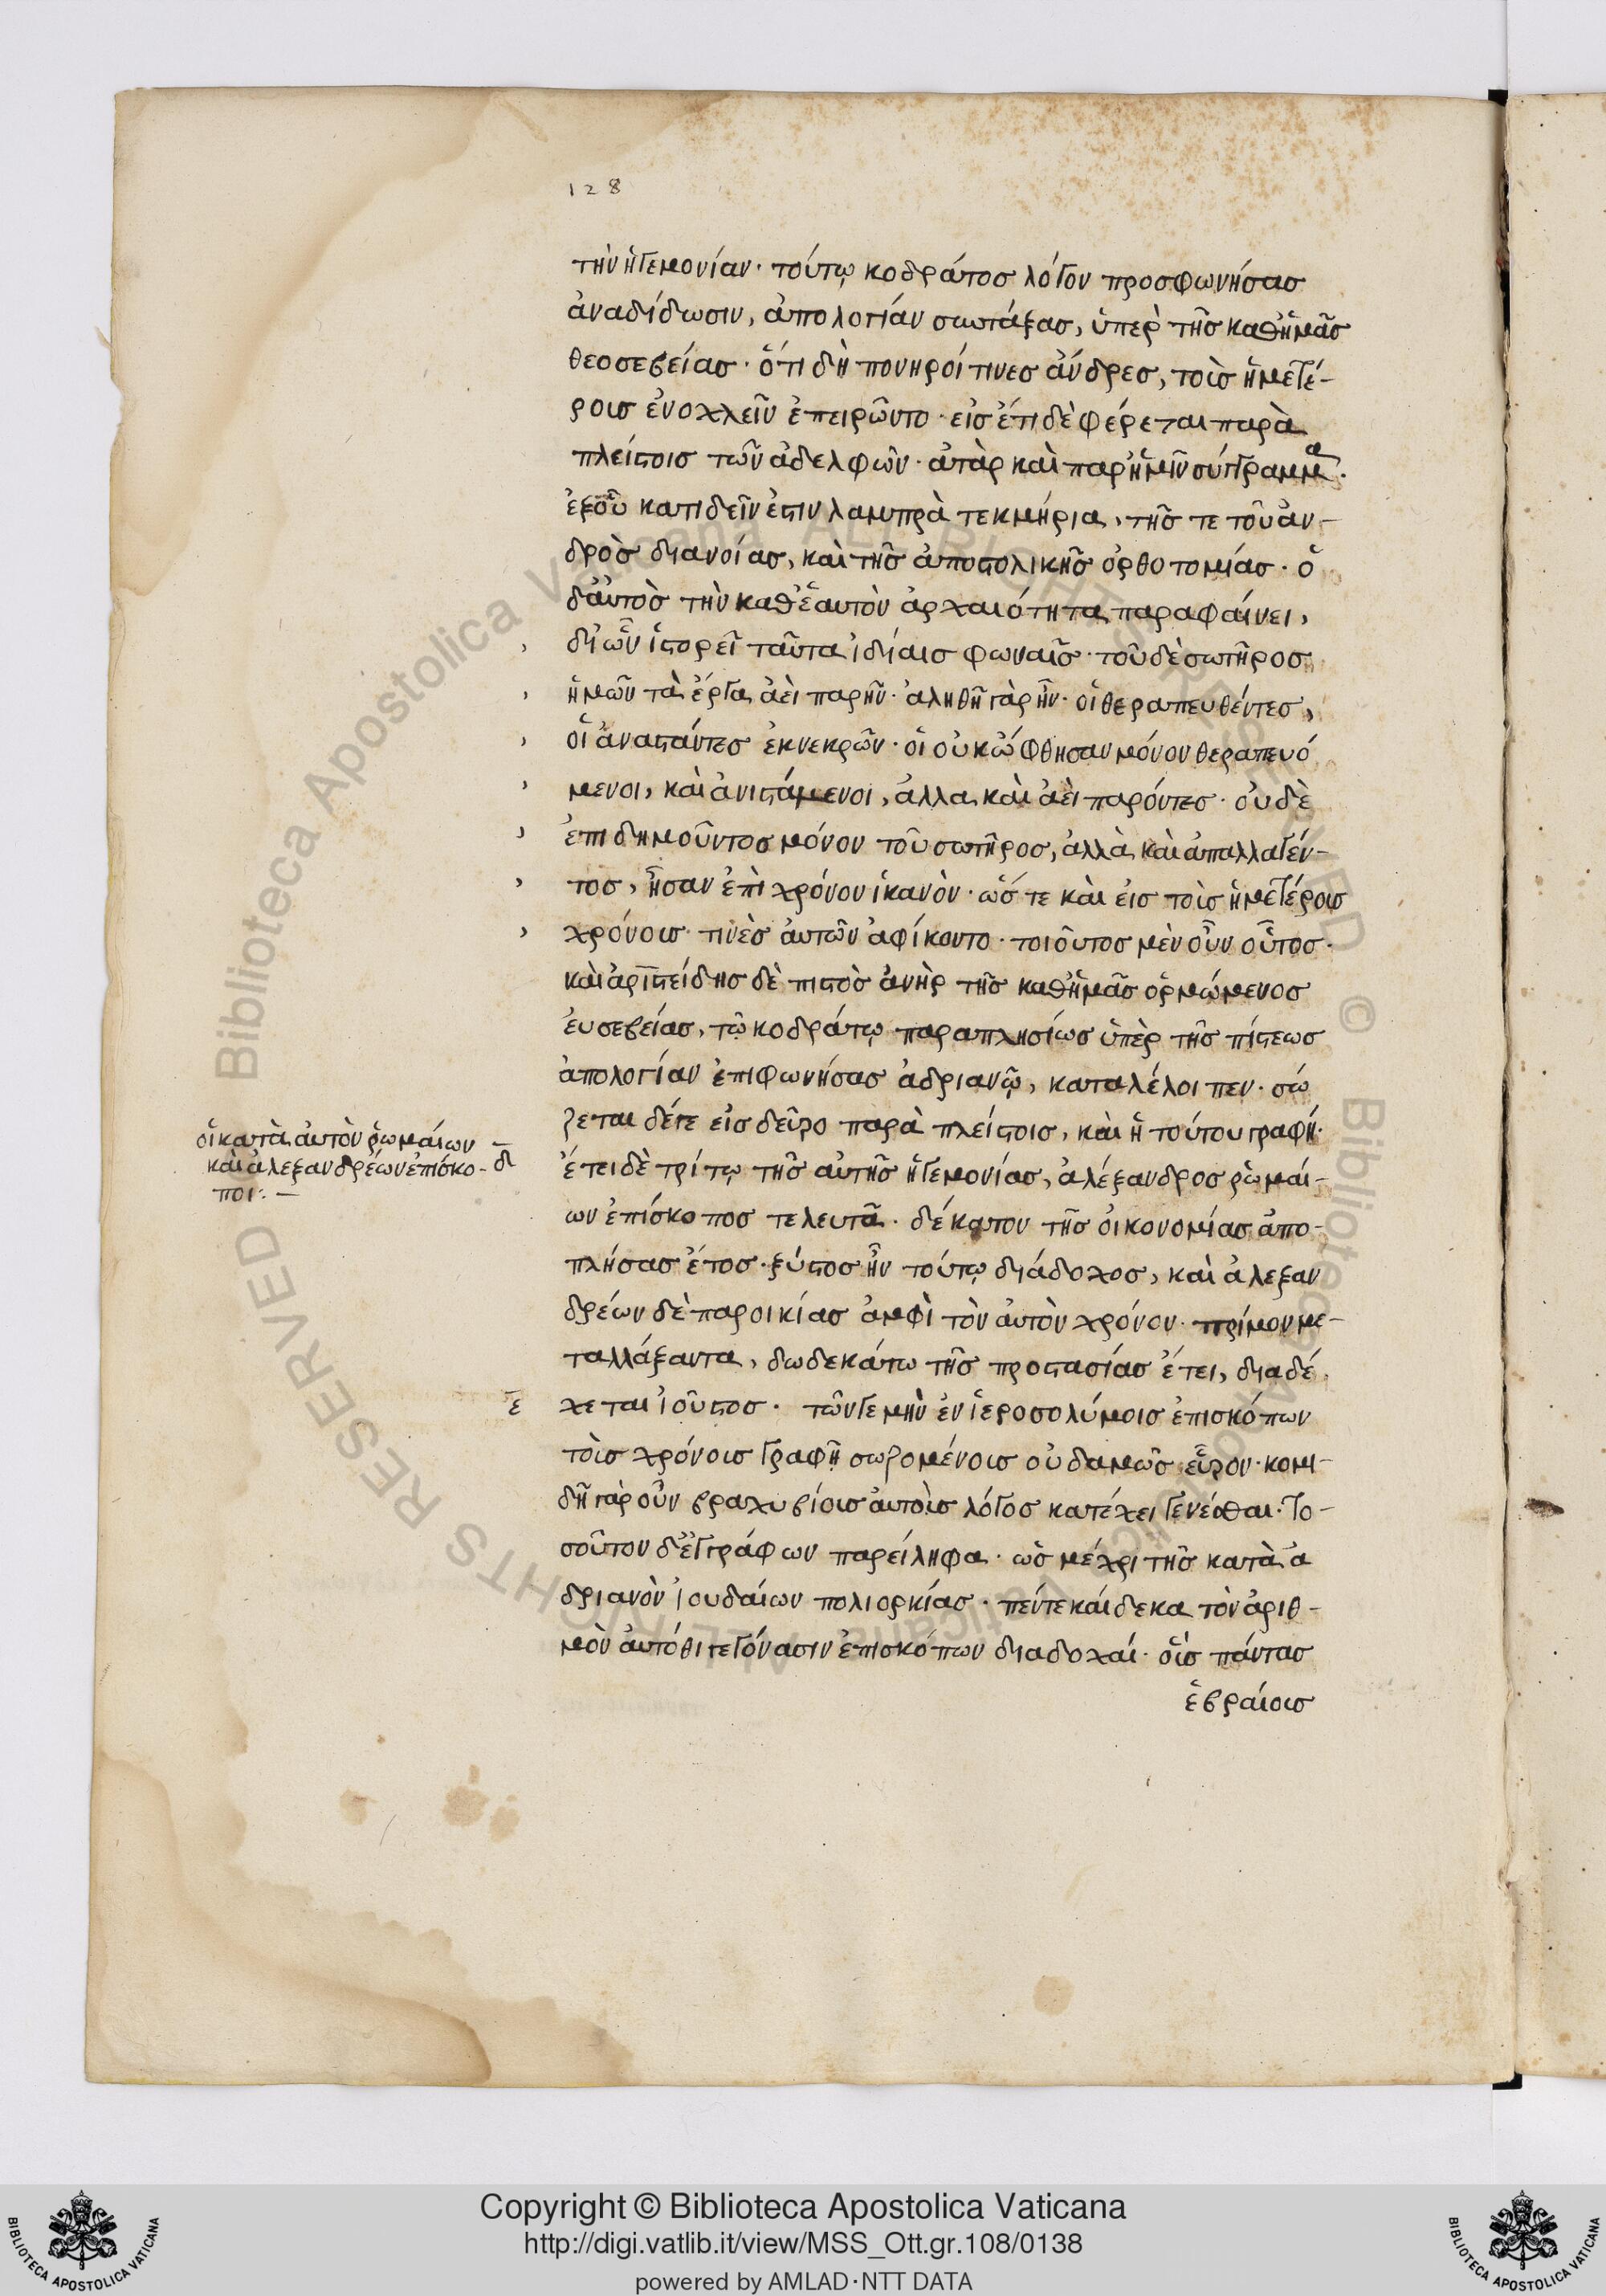 128
τὴν ἡγεμονίαν· τούτῳ κοδράτοσ λόγον προσφωνήσασ
ἀναδίδωσιν, ἀπολογίαν συντάξασ, ὑπὲρ τῆσ καθἡμᾶσ
θεοσεβείασ· ὅτι δὴ πονηροί τινεσ ἄνδρεσ, τοῖσ ἡμετέ-
ροισ ἐνοχλεῖν ἐπειρῶντο· εἰσ ἔτι δὲ φέρεται παρὰ
πλείστοισ τῶν ἀδελφῶν· ἀτὰρ καὶ παρ' ἡμῖν σύγγραμμα·
ἐξοὗ κατιδεῖν ἐστιν λαμπρὰ τεκμήρια, τῆσ τε τοῦ ἀν-
δρὸσ διανοίασ, καὶ τῆσ ἀποστολικῆσ ὀρθοτομίασ· ὁ
δ'ἀυτὸσ τὴν καθ'ἑαυτὸν ἀρχαιότητα παραφαίνει,
δι'ὧν ἱστορεῖ ταῦτα ἰδίαισ φωναῖσ· τοῦ δὲ σωτῆροσ
ἡμῶν τὰ ἔργα ἀεὶ παρῆν· ἀληθῆ γὰρ ἦν· οἱ θεραπευθέντεσ,
οἱ ἀναστάντεσ ἐκνεκρῶν· οἳ οὐκ ὤφθησαν μόνον θεραπευό
μενοι, καὶ ἀνιστάμενοι, ἀλλα καὶ ἀεὶ παρόντεσ· οὐδὲ
ἐπιδημοῦντοσ μόνον τοῦ σωτῆροσ, ἀλλὰ καὶ ἀπαλλαγέν-
τοσ, ἦσαν ἐπὶ χρόνον ἱκανὸν· ὥστε καὶ εἰσ τοὶσ ἡμετέροισ
χρόνοισ τινὲσ ἀυτῶν ἀφίκοντο· τοιοῦτοσ μὲν οὖν οὗτοσ·
καὶ ἀριστείδησ δὲ πιστὸσ ἀνὴρ τῆσ καθἡμᾶσ ὁρμώμενοσ
ἐυσεβείασ, τῷ κοδράτῳ παραπλησίωσ ὑπὲρ τῆσ πίστεωσ
ἀπολογίαν ἐπιφωνήσασ ἀδριανῷ, καταλέλοιπεν· σώ
ζεται δέγε εἰσ δεῦρο παρὰ πλείστοισ, καὶ ἡ τούτου γραφή·
οἱ κατὰ ἀυτὸν ῥωμαίων
καὶ ἀλεξανδρέων ἐπίσκο-
ποι:· —
δ
ἔτει δὲ τρίτῳ τῆσ αὐτῆσ ἡγεμονίασ, ἀλέξανδροσ ῥωμαί-
ων ἐπίσκοποσ τελευτᾶ· δέκατον τῆσ ὀικονομίασ ἀπο-
πλήσασ ἔτοσ· ξύστοσ ἦν τούτῳ διάδοχοσ, καὶ ἀλεξαν
δρέων δὲ παροικίασ ἀμφὶ τὸν ἀυτὸν χρόνον· πρίμον με-
ταλλάξαντα, δωδεκάτω τῆσ προστασίασ ἔτει, διαδέ
ε
χεται ἰοῦστοσ· τῶν γε μὴν ἐν ἱεροσολύμοισ ἐπισκόπων
τὸισ χρόνοισ γραφῆ σωζομένοισ οὐδαμῶσ εὗρον· κομι-
δῆ γὰρ οὖν βραχυβίοισ ἀυτοὶσ λόγοσ κατέχει γενέσθαι· το-
σοῦτον δ'ἐξ ἐγγράφων παρείληφα· ὡσ μέχρι τῆσ κατὰ ἀ
δριανὸν ἰουδαίων πολιορκίασ· πέντεκαίδεκα τὸν ἀριθ-
μὸν ἀυτόθι γεγόνασιν ἐπισκόπων διαδοχαί· οἷσ πάντασ
ἑβραίοισ
Copyright © Biblioteca Apostolica Vaticana
http://digi.vatlib.it/view/MSS_Ott.gr.108/0138
powered by AMLAD·NTT DATA